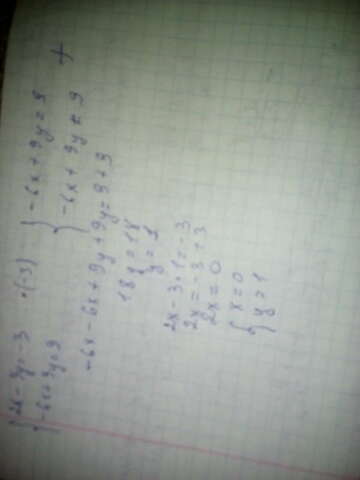 { 2x - 3y = -3 · (-3) { -6x + 9y = 9
{ -6x + 9y = 9 { -6x + 9y = 9 +
-6x - 6x + 9y + 9y = 9 + 9
18y = 18
y = 1
2x - 3 · 1 = -3
2x = -3 + 3
2x = 0
{ x = 0
{ y = 1